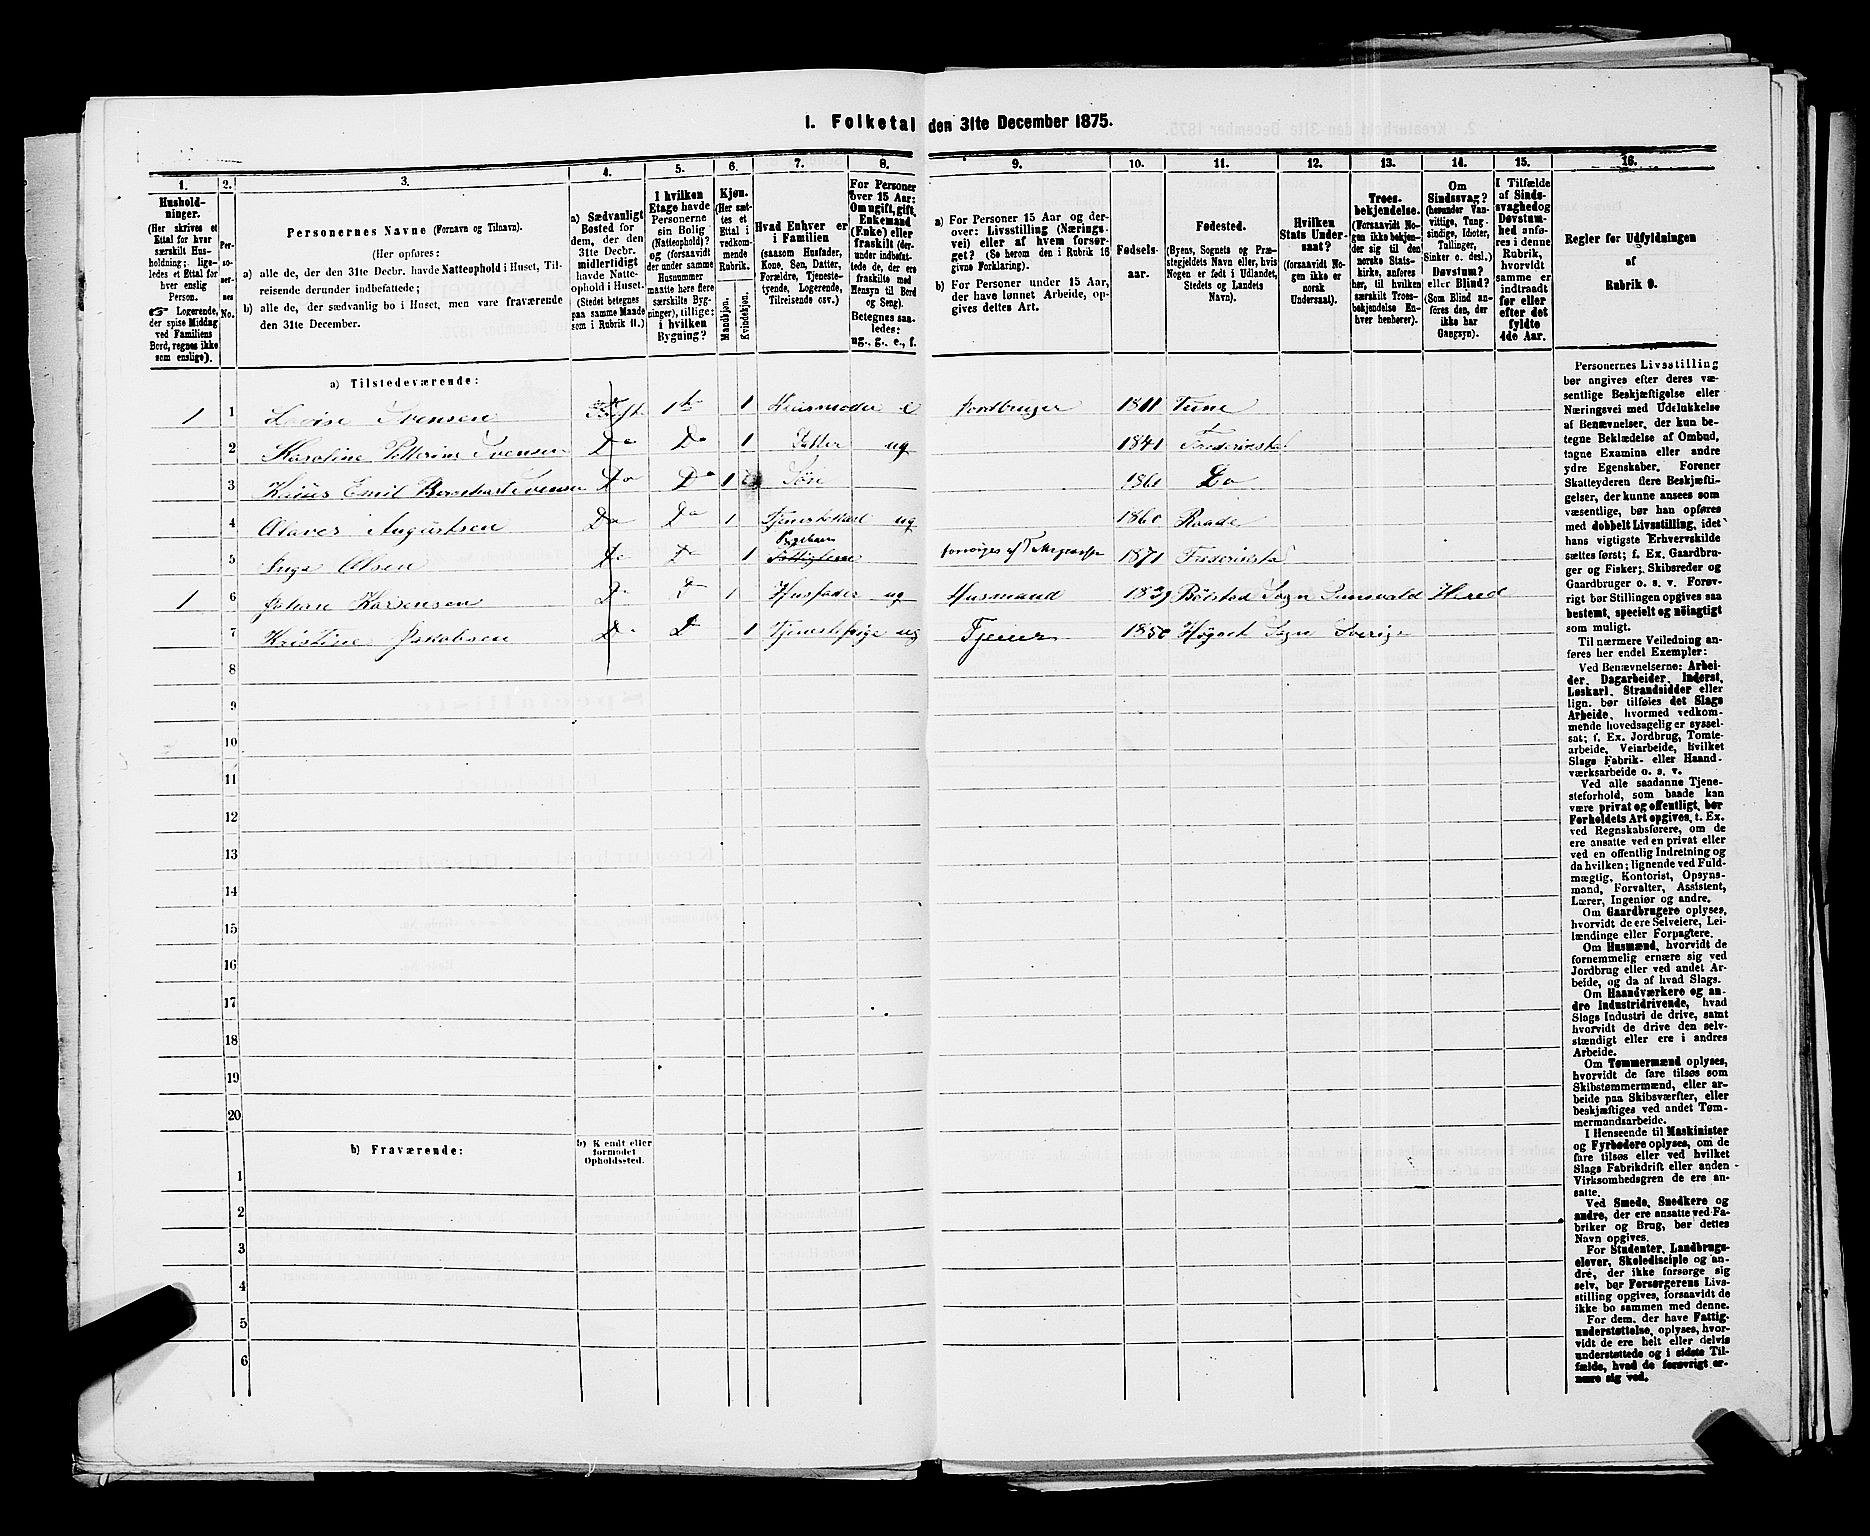 I. Folketal den 31te December 1875.
1. 2. 3. 4. 5. 6. 7. 8. 9. 10. 11. 12. 13. 14. 15. 16.
Husholdninger.
(Her skrives et
Ettal for hver
særskilt Husholdning;
ligeledes et Ettal for
hver enslig
Person.
☞ Logerende,
der spise Middag
ved Familiens
Bord, regnes ikke
som enslige).
Personernes No.
Personernes Navne (Fornavn og Tilnavn).
(Her opføres:
a) alle de, der den 31te Decbr. havde Natteophold i Huset, Tilreisende derunder indbefattede;
b) alle de, der sædvanlig bo i Huset, men vare fraværende
den 31te December.
a) Sædvanligt
Bosted for
dem, der den
31te Decbr.
midlertidigt
havde Natteophold i Huset.
(Stedet betegnes
paa samme Maade
som i Rubrik 11.)
I hvilken
Etage havde
Personerne
sin Bolig
(Natteophold)?
og (forsaavidt
der under samme
Husnummer
maatte høre flere
særskilte Bygninger), tillige:
i hvilken
Bygning?
Kjøn.
(Her sættes et
Ettal i
vedkommende
Rubrik.
Mandkjøn.
Kvindekjøn.
Hvad Enhver er
i Familien
(saasom Husfader,
Kone, Søn, Datter,
Forældre, Tjenestetyende, Logerende,
Tilreisende osv.)
For Personer
over 15 Aar:
Om ugift, gift,
Enkemand
(Enke) eller
fraskilt (derunder indbefattede de, der ere
fraskilte med
Hensyn til Bord
og Seng).
Betegnes saaledes:
ug., g., e., f.
a) For Personer 15 Aar og derover: Livsstilling (Næringsvei) eller af hvem forsørget? (Se herom den i Rubrik 16
givne Forklaring).
b) For Personer under 15 Aar,
der have lønnet Arbeide, opgives dettes Art.
Fødselsaar.
Fødested.
(Byens, Sognets og Præstegjeldets Navn eller, hvis
Nogen er født i Udlandet,
Stedets og Landets
Navn).
Hvilken
Stats Undersaat?
(forsaavidt Nogen ikke er
norsk
Undersaat).
Troesbekjendelse.
(Forsaavidt Nogen ikke bekjender sig til den
norske Statskirke, anføres
her, til hvilken
særskilt Troesbekjendelse Enhver henhører).
Om
Sindssvag?
(herunder Vanvittige, Tungsindige, Idioter,
Tullinger,
Sinker o. desl.)
Døvstum?
eller Blind?
(Som Blind anføres den, der
ikke har
Gangsyn).
I Tilfælde
af Sindssvaghed og
Døvstumhed anføres i denne
Rubrik,
hvorvidt
samme er
indtraadt
før eller
efter det
fyldte
4de Aar.
Regler for Udfyldningen
af
Rubrik 9.
a) Tilstedeværende:
1 1 Lovise Svensen 1 Husmoder e Jordbruger 1811 Tune
2 Karoline Petterine Svensen Do Do 1 Datter ug 1841 Fredrikstad
3 Kaius Emil Bernhart Svensen Do Do 1 Søn 1861 Do
4 Augustsen Do Do 1 Tjenestekarl ug 1860 Raade
5 Inga Olsen Do Do 1 Pleiebarn forsørges af 1871 Fredrikstad
1 6 Johan Do Do 1 Husfader ug Husmand 1839 Sogn Herred
7 Kristine Jakobsen Do Do 1 Tjenestepige ug Tjener 1850 Sogn Sverige
8
9
10
11
12
13
14
15
16
17
18
19
20
b) Fraværende:
b) Kjendt eller
formodet
Opholdssted.
1
2
3
4
5
6
Personernes Livsstilling
bør angives efter deres væsentlige Beskjæftigelse eller
Næringsvei med Udelukkelse
af Benævnelser, der kun betegne Beklædelse af Ombud,
tagne Examina eller andre
ydre Egenskaber. Forener
Skatteyderen flere Beskjæftigelser, der kunne ansees som
væsentlige, bør han opføres
med dobbelt Livsstilling, idet
hans vigtigste Erhvervskilde
sættes først; f. Ex. Gaardbruger og Fisker; Skibsreder og
Gaardbruger o. s. v. Forøvrigt bør Stillingen opgives saa
bestemt, specielt og nøiagtigt
som muligt.
Til nærmere Veiledning anføres her endel Exempler:
Ved Benævnelserne: Arbeider, Dagarbeider, Inderst,
Løskarl, Strandsidder eller
lign. bør tilføies det Slags
Arbeide, hvormed vedkommende hovedsagelig er sysselsat; f. Ex. Jordbrug, Tomtearbeide, Veiarbeide, hvilket
Slags Fabrik- eller Haandværksarbeide o. s. v.
Ved alle saadanne Tjenesteforhold, som baade kan
være privat og offentligt, bør
Forholdets Art opgives, t. Ex.
ved Regnskabsførere, om de
ere ansatte ved en privat eller
ved en offentlig Indretning og
da hvilken; lignende ved Fuldmægtig, Kontorist, Opsynsmand, Forvalter, Assistent,
Lærer, Ingeniør og andre.
Om Gaardbrugere oplyses,
hvorvidt de ere Selveiere, Leilændinge eller Forpagtere.
Om Husmænd, hvorvidt de
fornemmelig ernære sig ved
Jordbrug eller ved andet Arbeide, og da af hvad Slags.
Om Haandværkere og andre Industridrivende, hvad
Slags Industri de drive, samt
hvorvidt de drive den selvstændigt eller ere i andres
Arbeide.
Om Tømmermænd oplyses,
hvorvidt de fare tilsøs som
Skibstømmermænd, eller arbeide paa Skibsværfter, eller
beskjæftiges ved andet Tømmermandsarbeide.
I Henseende til Maskinister
og Fyrbødere oplyses, om de
fare tilsøs eller ved hvilket
Slags Fabrikdrift eller anden
Virksomhedsgren de ere ansatte.
Ved Smede, Snedkere og
andre, der ere ansatte ved Fabriker og Brug, bør dettes
Navn opgives.
For Studenter, Landbrugselever, Skoledisciple og andre, der ikke forsørge sig
selv, bør Forsørgerens Livsstilling opgives, forsaavidt de
ikke bo sammen med denne.
For dem, der have Fattigunderstøttelse, oplyses, hvorvidt de ere helt eller delvis
understøttede og i sidste Tilfælde, hvad de forøvrigt ernære sig ved.